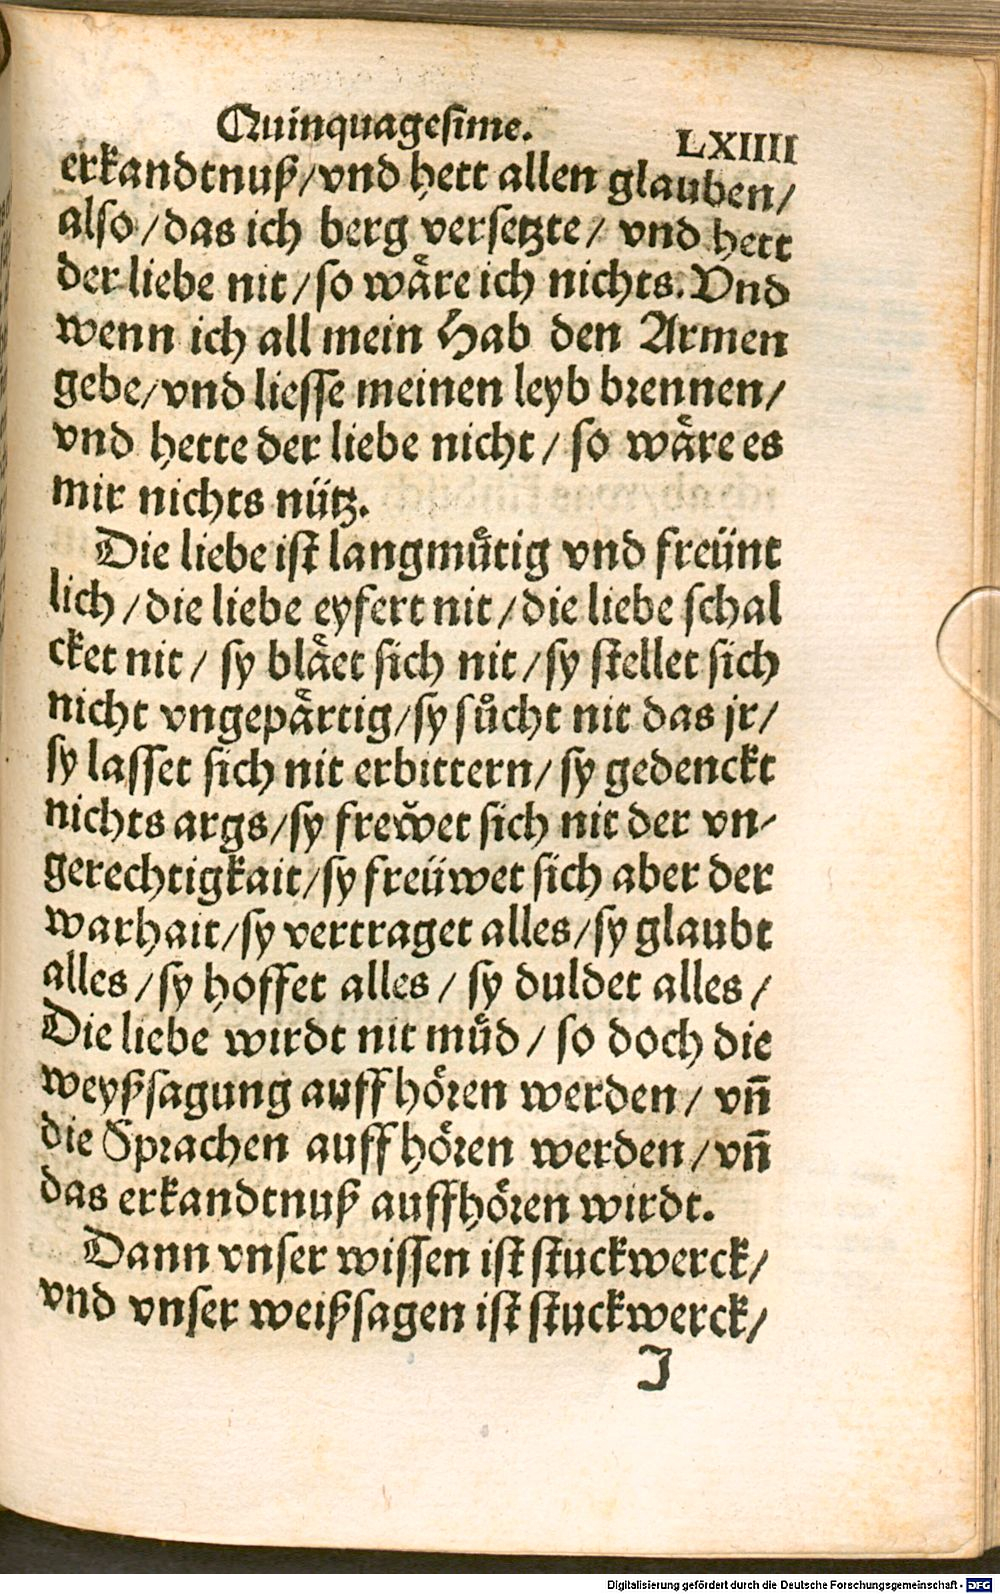 Quinquagesime. LXIIII
erkandtnuß/vnd hett allen glauben/
also/das ich berg versetzte/ vnd hett
der liebe nit/so wåre ich nichts. Vnd
wenn ich all mein Hab den Armen
gebe/vnd liesse meinen leyb brennen/
vnd hette der liebe nicht/ so wåre es
mir nichts nütz.
Die liebe ist langmůtig vnd freünt
lich/die liebe eyfert nit/die liebe schal
cket nit/ sy blået sich nit/sy stellet sich
nicht vngepårtig/sy sůcht nit das jr/
sy lasset sich nit erbittern/sy gedenckt
nichts args/sy frew̌et sich nit der vn-
gerechtigkait/sy freüwet sich aber der
warhait/sy vertraget alles/sy glaubt
alles/sy hoffet alles/ sy duldet alles/
Die liebe wirdt nit můd/ so doch die
weyßsagung auffhören werden/ vñ
die Sprachen auffhören werden/vñ
das erkandtnuß auffhören wirdt.
Dann vnser wissen ist stuckwerck/
vnd vnser weißsagen ist stuckwerck/
J
Digitalisierung gefördert durch die Deutsche Forschungsgemeinschaft - DFG